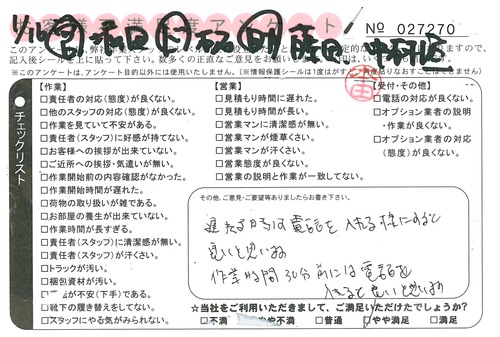 お客様満足度アンケート
No 027270
記入後シールを上に貼って下さい。数多くの真直なご意見をお
(※このアンケートは、アンケート目的以外には使用いたしません。)(※情報保護シールは1度はがす
チェックリスト
【作業】
□責任者の対応(態度)が良くない。
□他のスタッフの対応(態度)が良くない。
□作業を見ていて不安がある。
□責任者(スタッフ)に好感が持てない。
□お客様への挨拶が出来ていない。
□ご近所への挨拶・気遣いが無い。
□作業開始前の内容確認がなかった。
□作業開始時間が遅れた。
□荷物の取り扱いが雑である。
□お部屋の養生が出来ていない。
□作業時間が長すぎる。
□責任者(スタッフ)に清潔感が無い。
□責任者(スタッフ)が汗くさい。
□トラックが汚い。
□梱包資材が汚い。
が不安(下手)である。
□靴下の履き替えをしてない。
□スタッフにやる気がみられない。
【営業】
□見積もり時間に遅れた。
□見積もり時間が長い。
□営業マンに清潔感が無い。
□営業マンが煙草くさい。
□営業マンが汗くさい。
□営業態度が良くない。
□営業の説明と作業が一致してない。
【受付・その他】
□電話の対応が良くない。
□オプション業者の説明
・作業が良くない。
□オプション業者の対応
(態度)が良くない。
その他、ご意見・ご要望等ありましたらお書き下さい。
遅れる時は電話を入れる様にすると
良いと思います
作業時間30分前には電話を
入れると良いと思います
☆当社をご利用いただきまして、ご満足いただけたでしょうか?
□不満 □やや不満 □普通 □やや満足 □満足